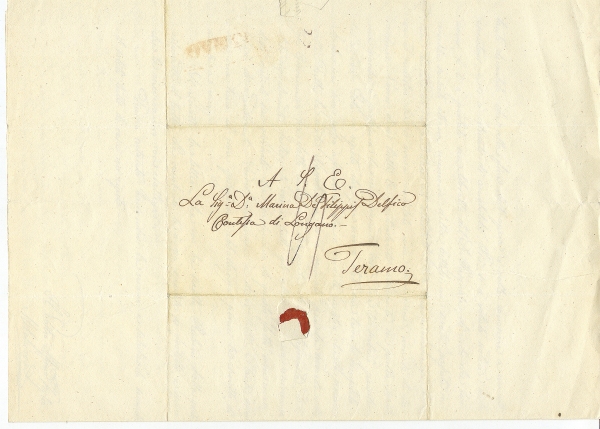 A S E.
La Sig.ª D.ª Marina De Filippis Delfico
Contessa di Longano.
Teramo.